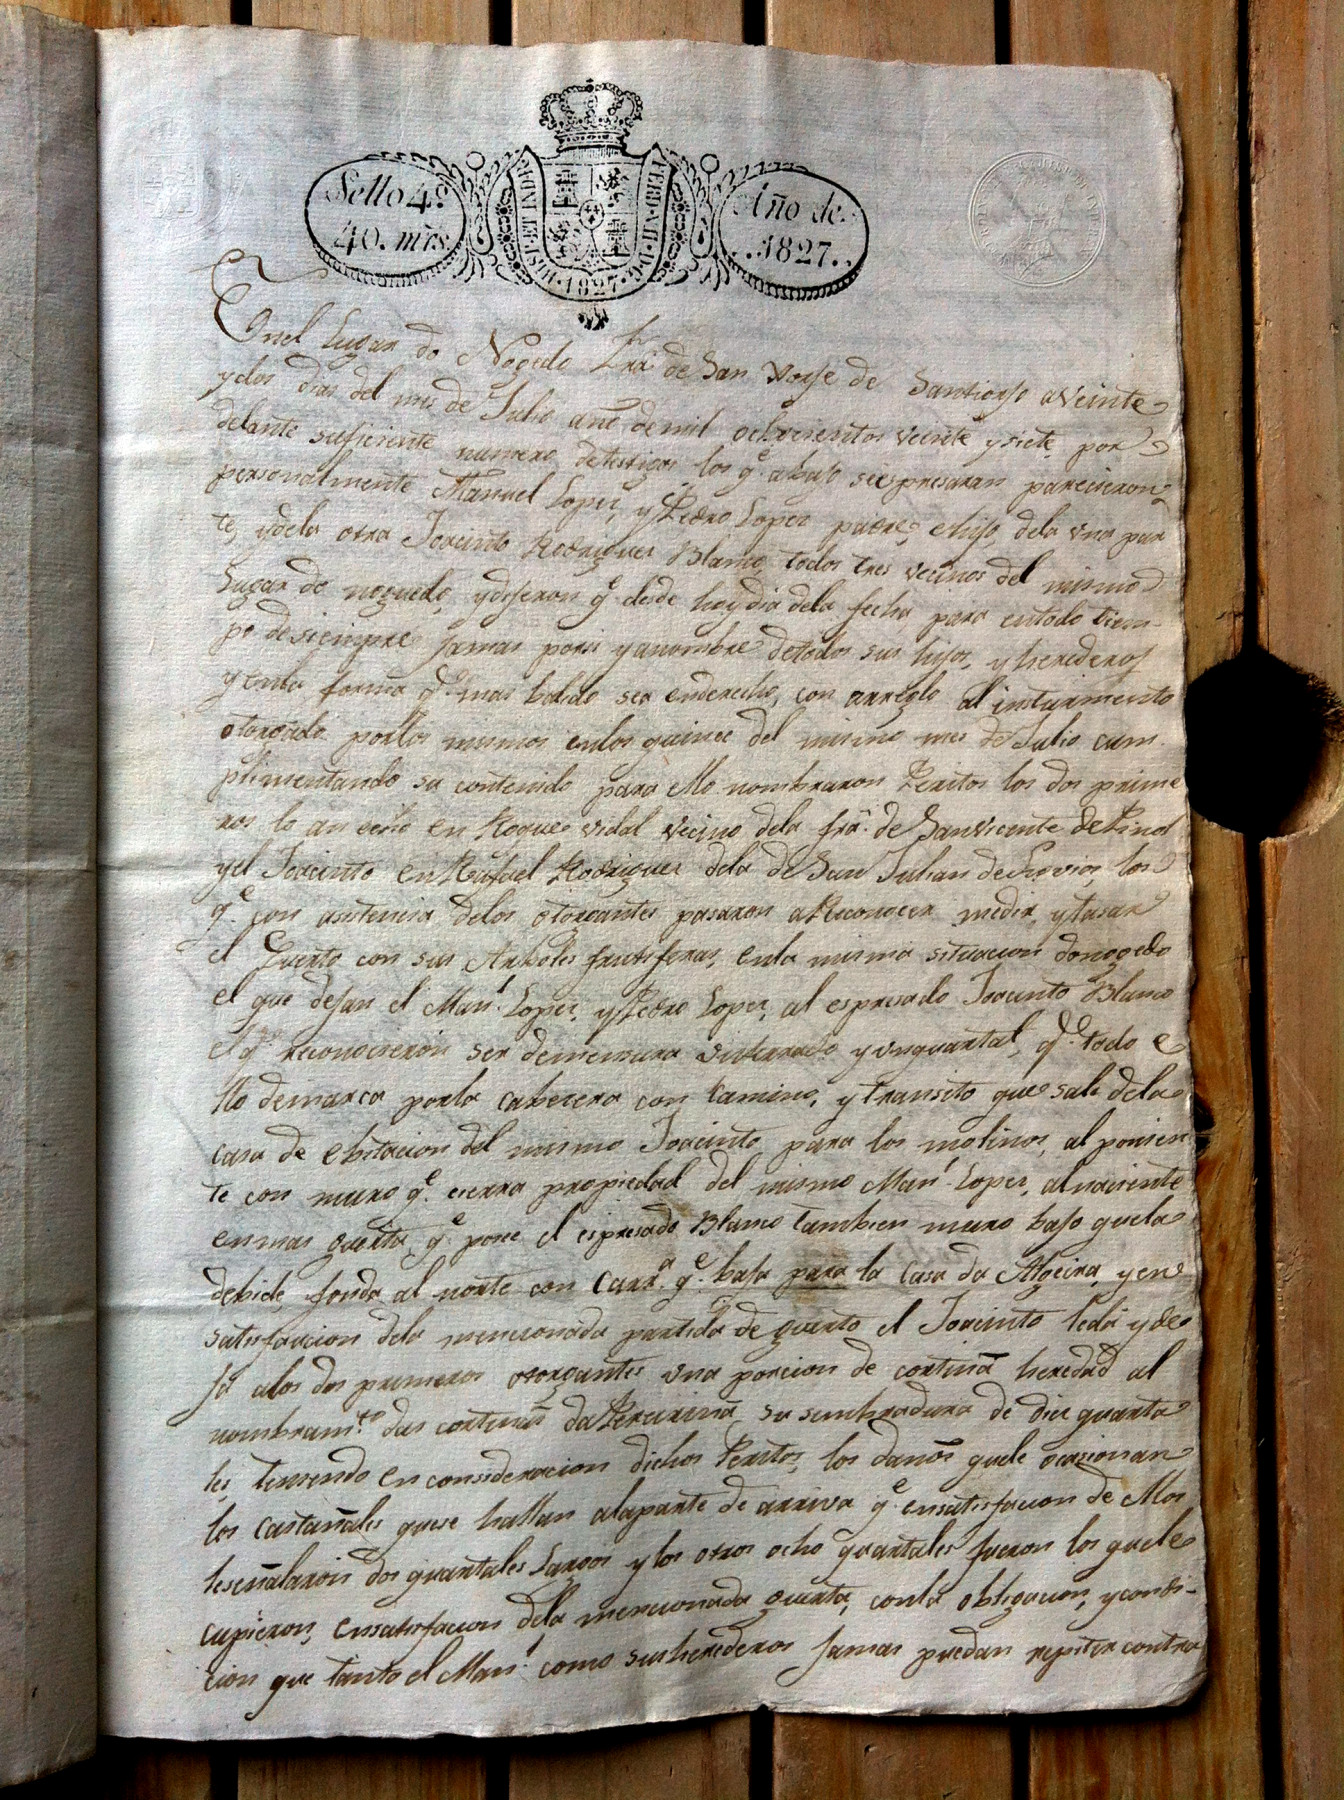 Sello 4º
40. mrs.
HISP. ET IND. R. FERD. VII. D. G. 1827
Año de
1827
Enel Lugar do Nogedo frª de San Jorje de Santiorjo a veinte
y dos dias del mes de Julio año de mil ochocientos veinte y siete, por
delante suficiente numero de testigos los q.e abajo se espresaran parecieron
personalmente Manuel Lopez, y Pedro Lopez padre, e hijo, dela una par
te, y dela otra Jacinto Rodriguez Blanco, todos tres vecinos del mismo
Lugar do noguedo, y dijeron q.e desde hoy dia dela fecha, para entodo tiem-
po de siempre jamas porsi y anombre detodos sus hijos, y herederos
y enla forma q.e mas balido sea enderecho, con arreglo al insturmento
otorgado por los mismos enlos quince del mismo mes de Julio cum
plimentando su contenido para ello nombraron Peritos los dos prime
ros lo an echo en Roque Vidal vecino dela frª de San Vicente de Pinol
y el Jacinto en Rafael Rodriguez dela de San Julian de los
q.e con asistencia delos otorgantes pasaron a Reconocer medir, y tasar
el Querto con sus Arboles frutiferas, enla misma situacion donogedo
el que dejan el Man.l Lopez, y Pedro Lopez, al espresado Jacinto Blanco
el q.e reconocieron ser demensura y un quartal, q.e todo e
llo demarca porla cabecera con camino, y transito que sale dela
casa de ebitacion del mismo Jacinto para los molinos, al ponien
te con muro q.e cierra propiedad del mismo Man.l Lopez, al naciente
enmas querta q.e posee el espresado Blanco tambien muro bajo quela
debide, fonda al norte con Carr.a q.e baja para la Casa da Algeira, y en
satisfaccion dela mencionada partida de querto el Jacinto Ceda y de
ja alos dos primeros otorgantes una porcion de cortiña heredad al
nombram.to das cortiñas da Pereiriña su sembradura de diez quarta
les, teniendo en consideracion dichos Peritos, los daños quele ocasionan
los castañales quese hallan alaparte de arriva q.e ensatisfacion de ellos
leseñalaron dos quartales Largos y los otros ocho quartales fueron los quele
cupieron, ensatisfacion dela mencionada querta, conla obligacion, y condi-
cion que tanto el Man.l como susherederos jamas puedan repitir contra